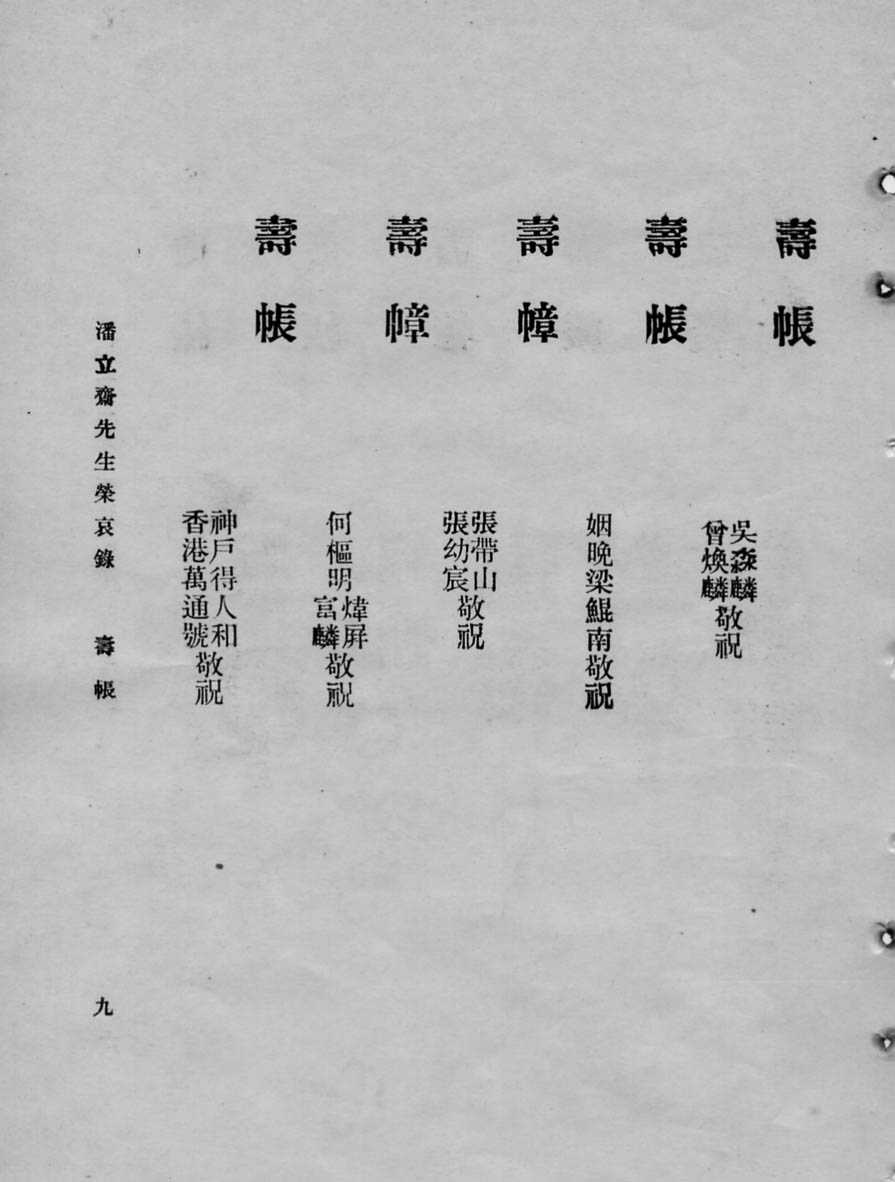 壽帳
吳森麟
曾煥麟
敬祝
壽帳
姻晚梁鯤南敬祝
壽幛
張帶山
張幼宸
敬祝
壽幛
何樞明
煒屏
富麟
敬祝
壽帳
神戶得人和
香港萬通號
敬祝
潘立齋先生榮哀錄 壽帳 九